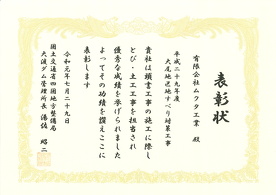 表彰状
有限会社ムクタ工業 殿
平成二十九年度
大尾地区地すべり対策工事
貴社は頭書工事の施工に際し
とび・土工工事を担当され
優秀な成績を挙げられました
よってその功績を讃えここに
表彰します
令和元年七月二十九日
国土交通省四国地方整備局
大渡ダム管理所長
昭二